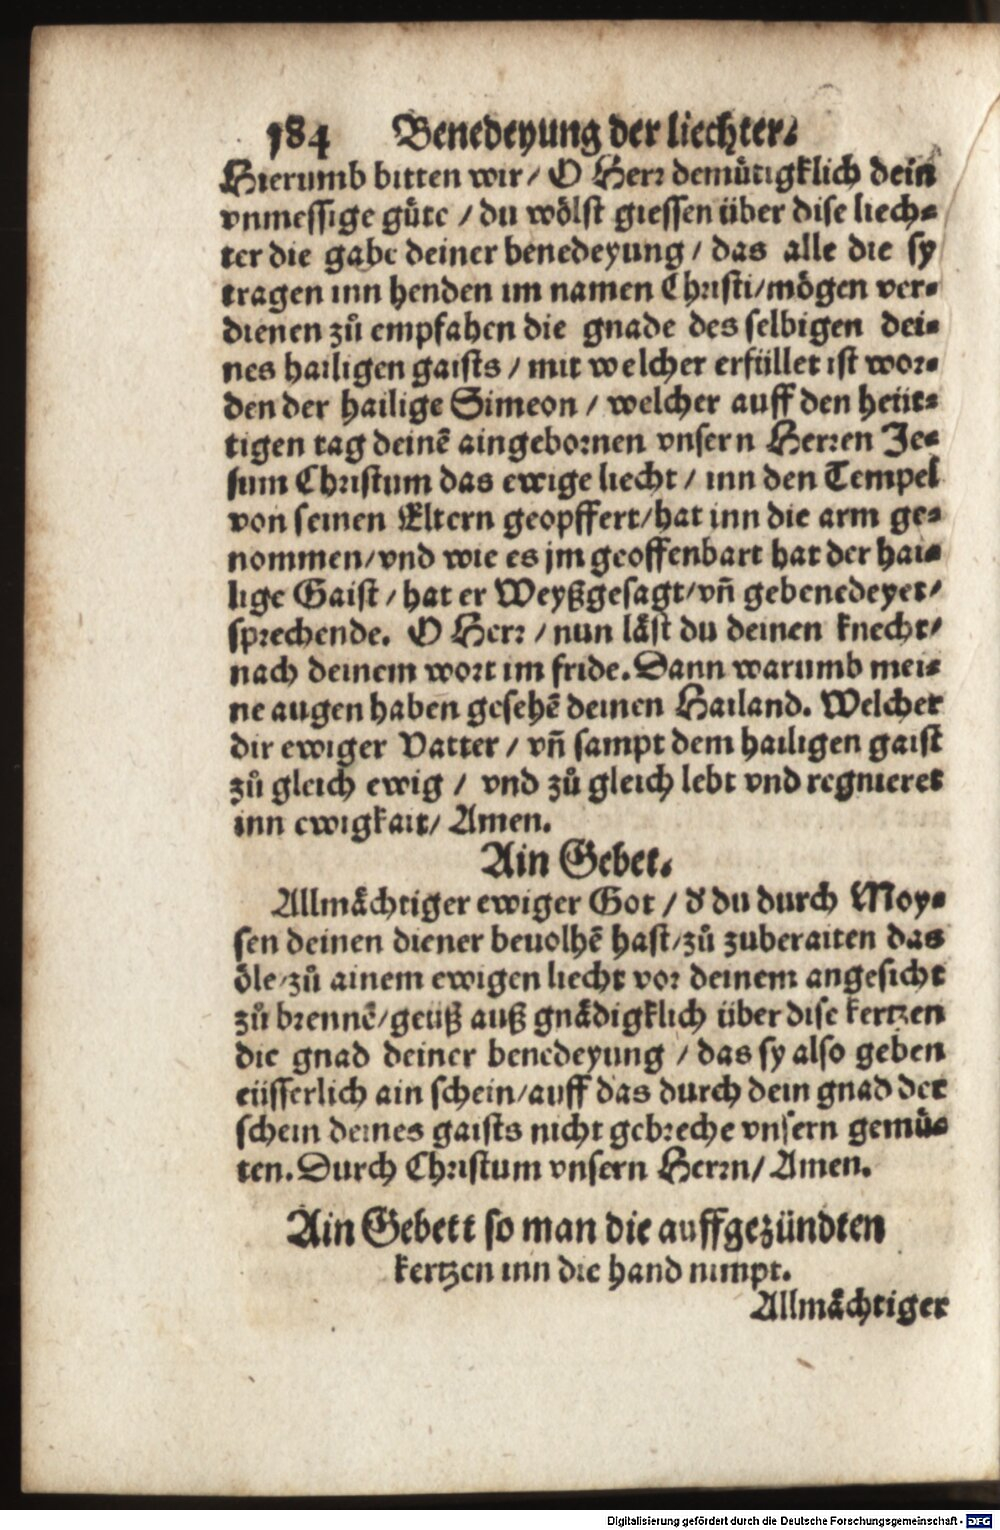 184 Benedeyung der liechter.
Hierumb bitten wir/ O Herr demütigklich dein
vnmessige güte / du wölst giessen über dise liech-
ter die gabe deiner benedeyung / das alle die sy
tragen inn henden im namen Christi/mögen ver-
dienen zů empfahen die gnade des selbigen dei-
nes hailigen gaists / mit welcher erfüllet ist wor-
den der hailige Simeon / welcher auff den heüt-
tigen tag deinē aingebornen vnsern Herren Je-
sum Christum das ewige liecht / inn den Tempel
von seinen Eltern geopffert/hat inn die arm ge-
nommen/vnd wie es jm geoffenbart hat der hai-
lige Gaist / hat er Weyßgesagt/vñ gebenedeyet/
sprechende. O Herr / nun läst du deinen knecht/
nach deinem wort im fride. Dann warumb mei-
ne augen haben gesehē deinen Hailand. Welcher
dir ewiger Vatter / vñ sampt dem hailigen gaist
zů gleich ewig / vnd zů gleich lebt vnd regnieret
inn ewigkait/ Amen.
Ain Gebet.
Allmåchtiger ewiger Got / d' du durch Moy-
sen deinen diener beuolhē hast/zů zuberaiten das
öle/zů ainem ewigen liecht vor deinem angesicht
zů brennē/geüß auß gnådigklich über dise kertzen
die gnad deiner benedeyung / das sy also geben
eüsserlich ain schein/auff das durch dein gnad der
schein deines gaists nicht gebreche vnsern gemü-
ten. Durch Christum vnsern Herrn/ Amen.
Ain Gebett so man die auffgezündten
kertzen inn die hand nimpt.
Allmåchtiger
Digitalisierung gefördert durch die Deutsche Forschungsgemeinschaft - DFG